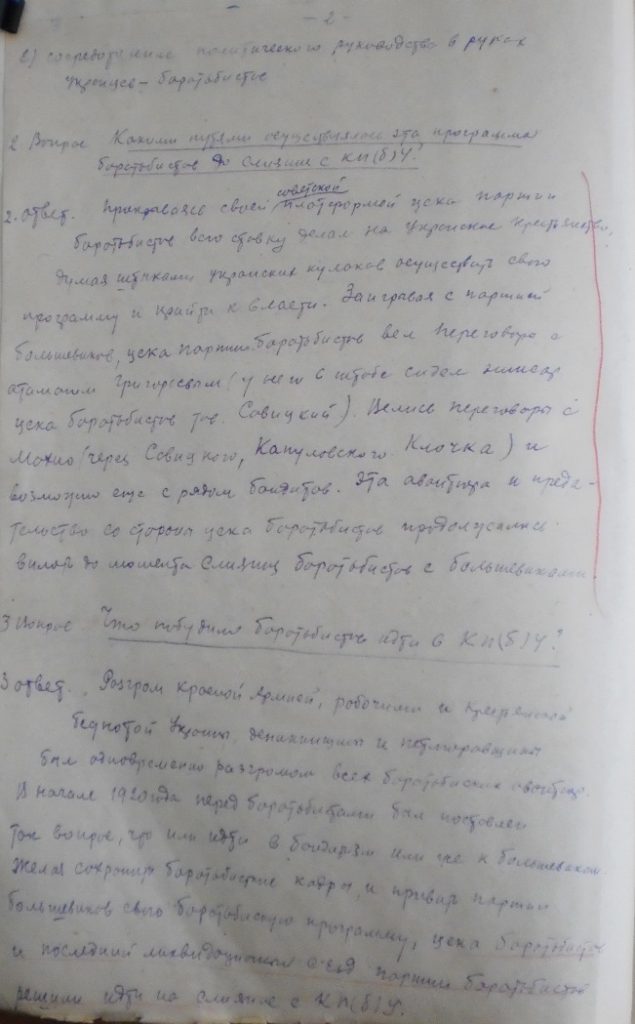 - 2 -
в) сосредоточение политического руководства в руках
украинцев - боротьбистов
2 Вопрос Какими путями осуществлялось эта программа
боротбистов до слияние с КП(б)У?
советской
2. ответ. Прикрываясь своей платформой цека партии
боротбистов всю ставку делал на украинское крестьянство,
думая штыками украинских кулаков осуществить свою
программу и прийти к власти. Заигравая с партией
большевиков, цека партии боротбистов вел переговоры с
атаманом Григорьевым (у него в штабе сидел
цека боротбистов тов. Савицкий). Велись переговоры с
Махно (через Савицкого, Капуловского Клочка) и
возможно еще с рядом бандитов. Эта авантюра и преда-
тельство со стороны цека боротбистов продолжались
вплоть до момента слияния боротбистов с большевиками.
3 Вопрос Что побудило боротбистов идти в КП(б)У?
3 ответ. Розгром красной Армией, рабочими и крестьянской
беднотой Украины, деникищины и петлюровщины
был одновременно разгромом всех боротбиских авантюр.
В начале 1920 года перед боротбистами был поставлен
так вопрос, что или идти в бандитизм или же к большевикам.
Желая сохронить боротбиские кадры, и привить партии
большевиков свою боротбискую программу, цека боротбистов
и последний ликвидационный с'езд партии боротбистов
решили идти на слияние с КП(б)У.